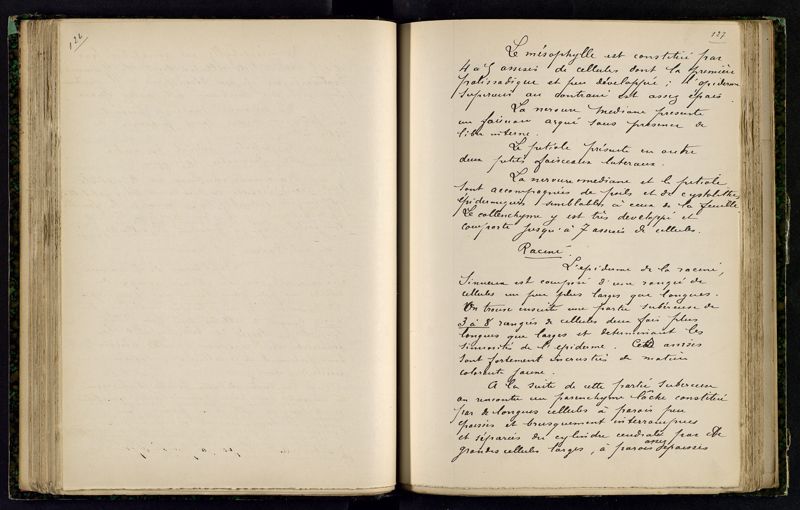 126
127
Le mésophylle est constitué par
4 à 5 assises de cellules dont la première
palissadique et peu développée ; l'épiderme
supérieur au contraire est assez épais.
La nervure médiane présente
un faisceau arqué sans présence de
liber interne.
Le pétiole présente en outre
deux petits faisceaux latéraux.
La nervure médiane et le pétiole
sont accompagnés de poils et de cystolithes
épidermiques semblables à ceux de la feuille
Le collenchyme y est très développé et
comporte jusqu'à 7 assises de cellules.
Racine.
L'épiderme de la racine,
sinueux est composé d'une rangée de
cellules un peu plus larges que longues.
On trouve ensuite une partie subéreuse de
3 à 8 rangées de cellules deux fois plus
longues que larges et déterminant les
sinuosités de l'épiderme. Ces assises
sont fortement incrustées de matière
colorante jaune.
A la suite de cette partie subéreuse
on rencontre un parenchyme lâche constitué
par de longues cellules à parois peu
épaisses et brusquement interrompues
et séparées du cylindre central par de
grandes cellules larges, à parois assez épaisses